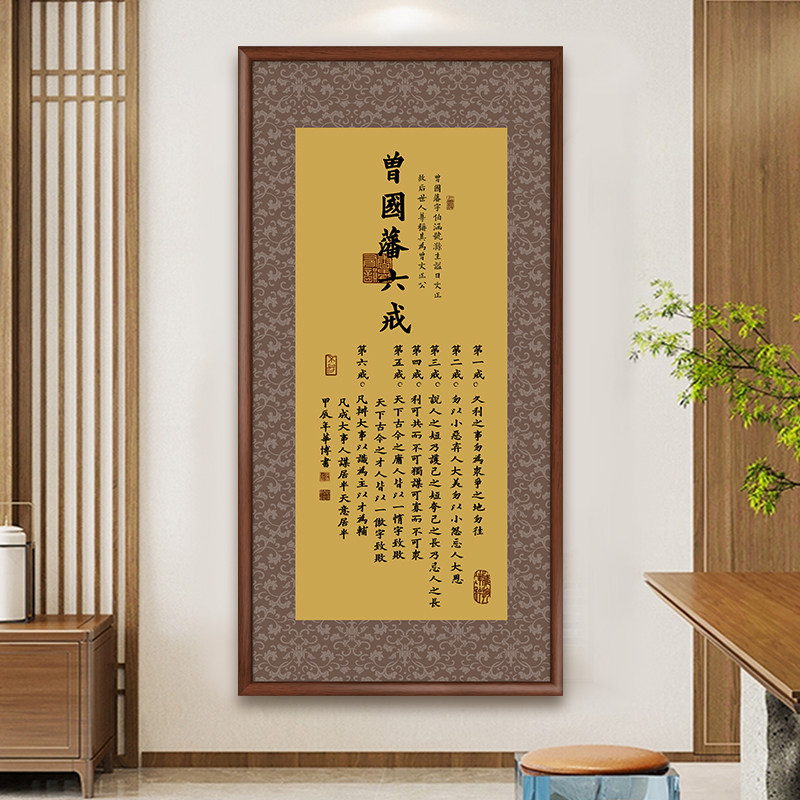 曾國藩六戒
曾國藩字伯涵號滌生謚曰文正
故后世人尊稱其為曾文正公
第一戒。久利之事勿為衆爭之地勿往
第二戒。勿以小惡弃人大美勿以小怨忘人大恩
第三戒。說人之短乃護己之短夸己之長乃忌人之長
第四戒。利可共而不可獨謀可寡而不可衆
第五戒。天下古今之庸人皆以一惰字致敗
天下古今之才人皆以一傲字致敗
第六戒。凡辦大事以識為主以才為輔
凡成大事人謀居半天意居半
甲辰年華博書